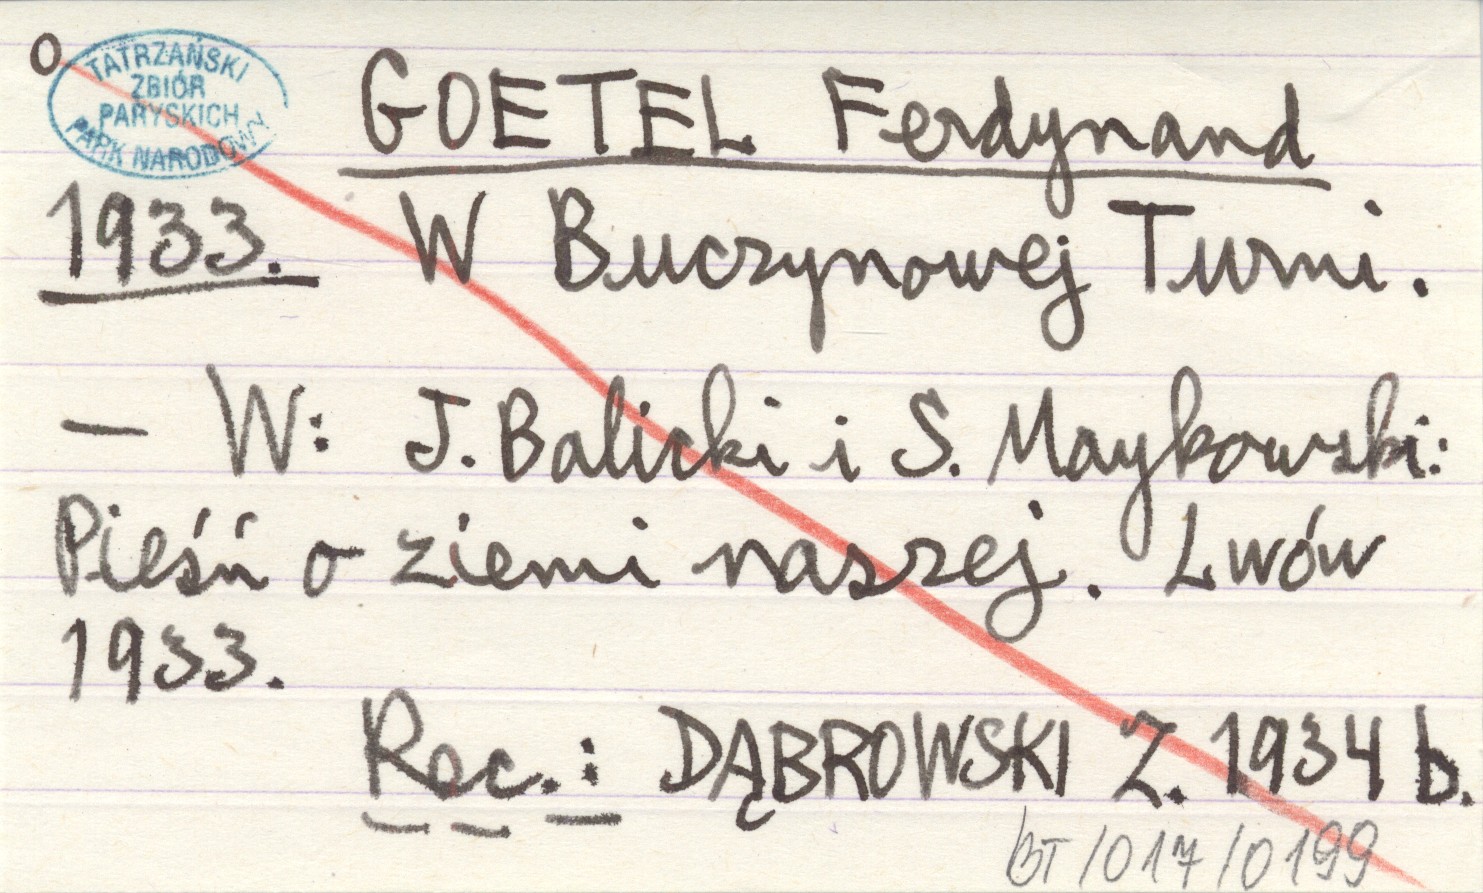 o
TATRZAŃSKI
ZBIÓR
PARYSKICH
PARK NARODOWY
GOETEL Ferdynand
1933. W Buczynowej Turni.
— W: J. Balicki i S. Maykowski:
Pieśń o ziemi naszej. Lwów
1933.
Rec.: DĄBROWSKI Z. 1934 b.
BT/017/0199